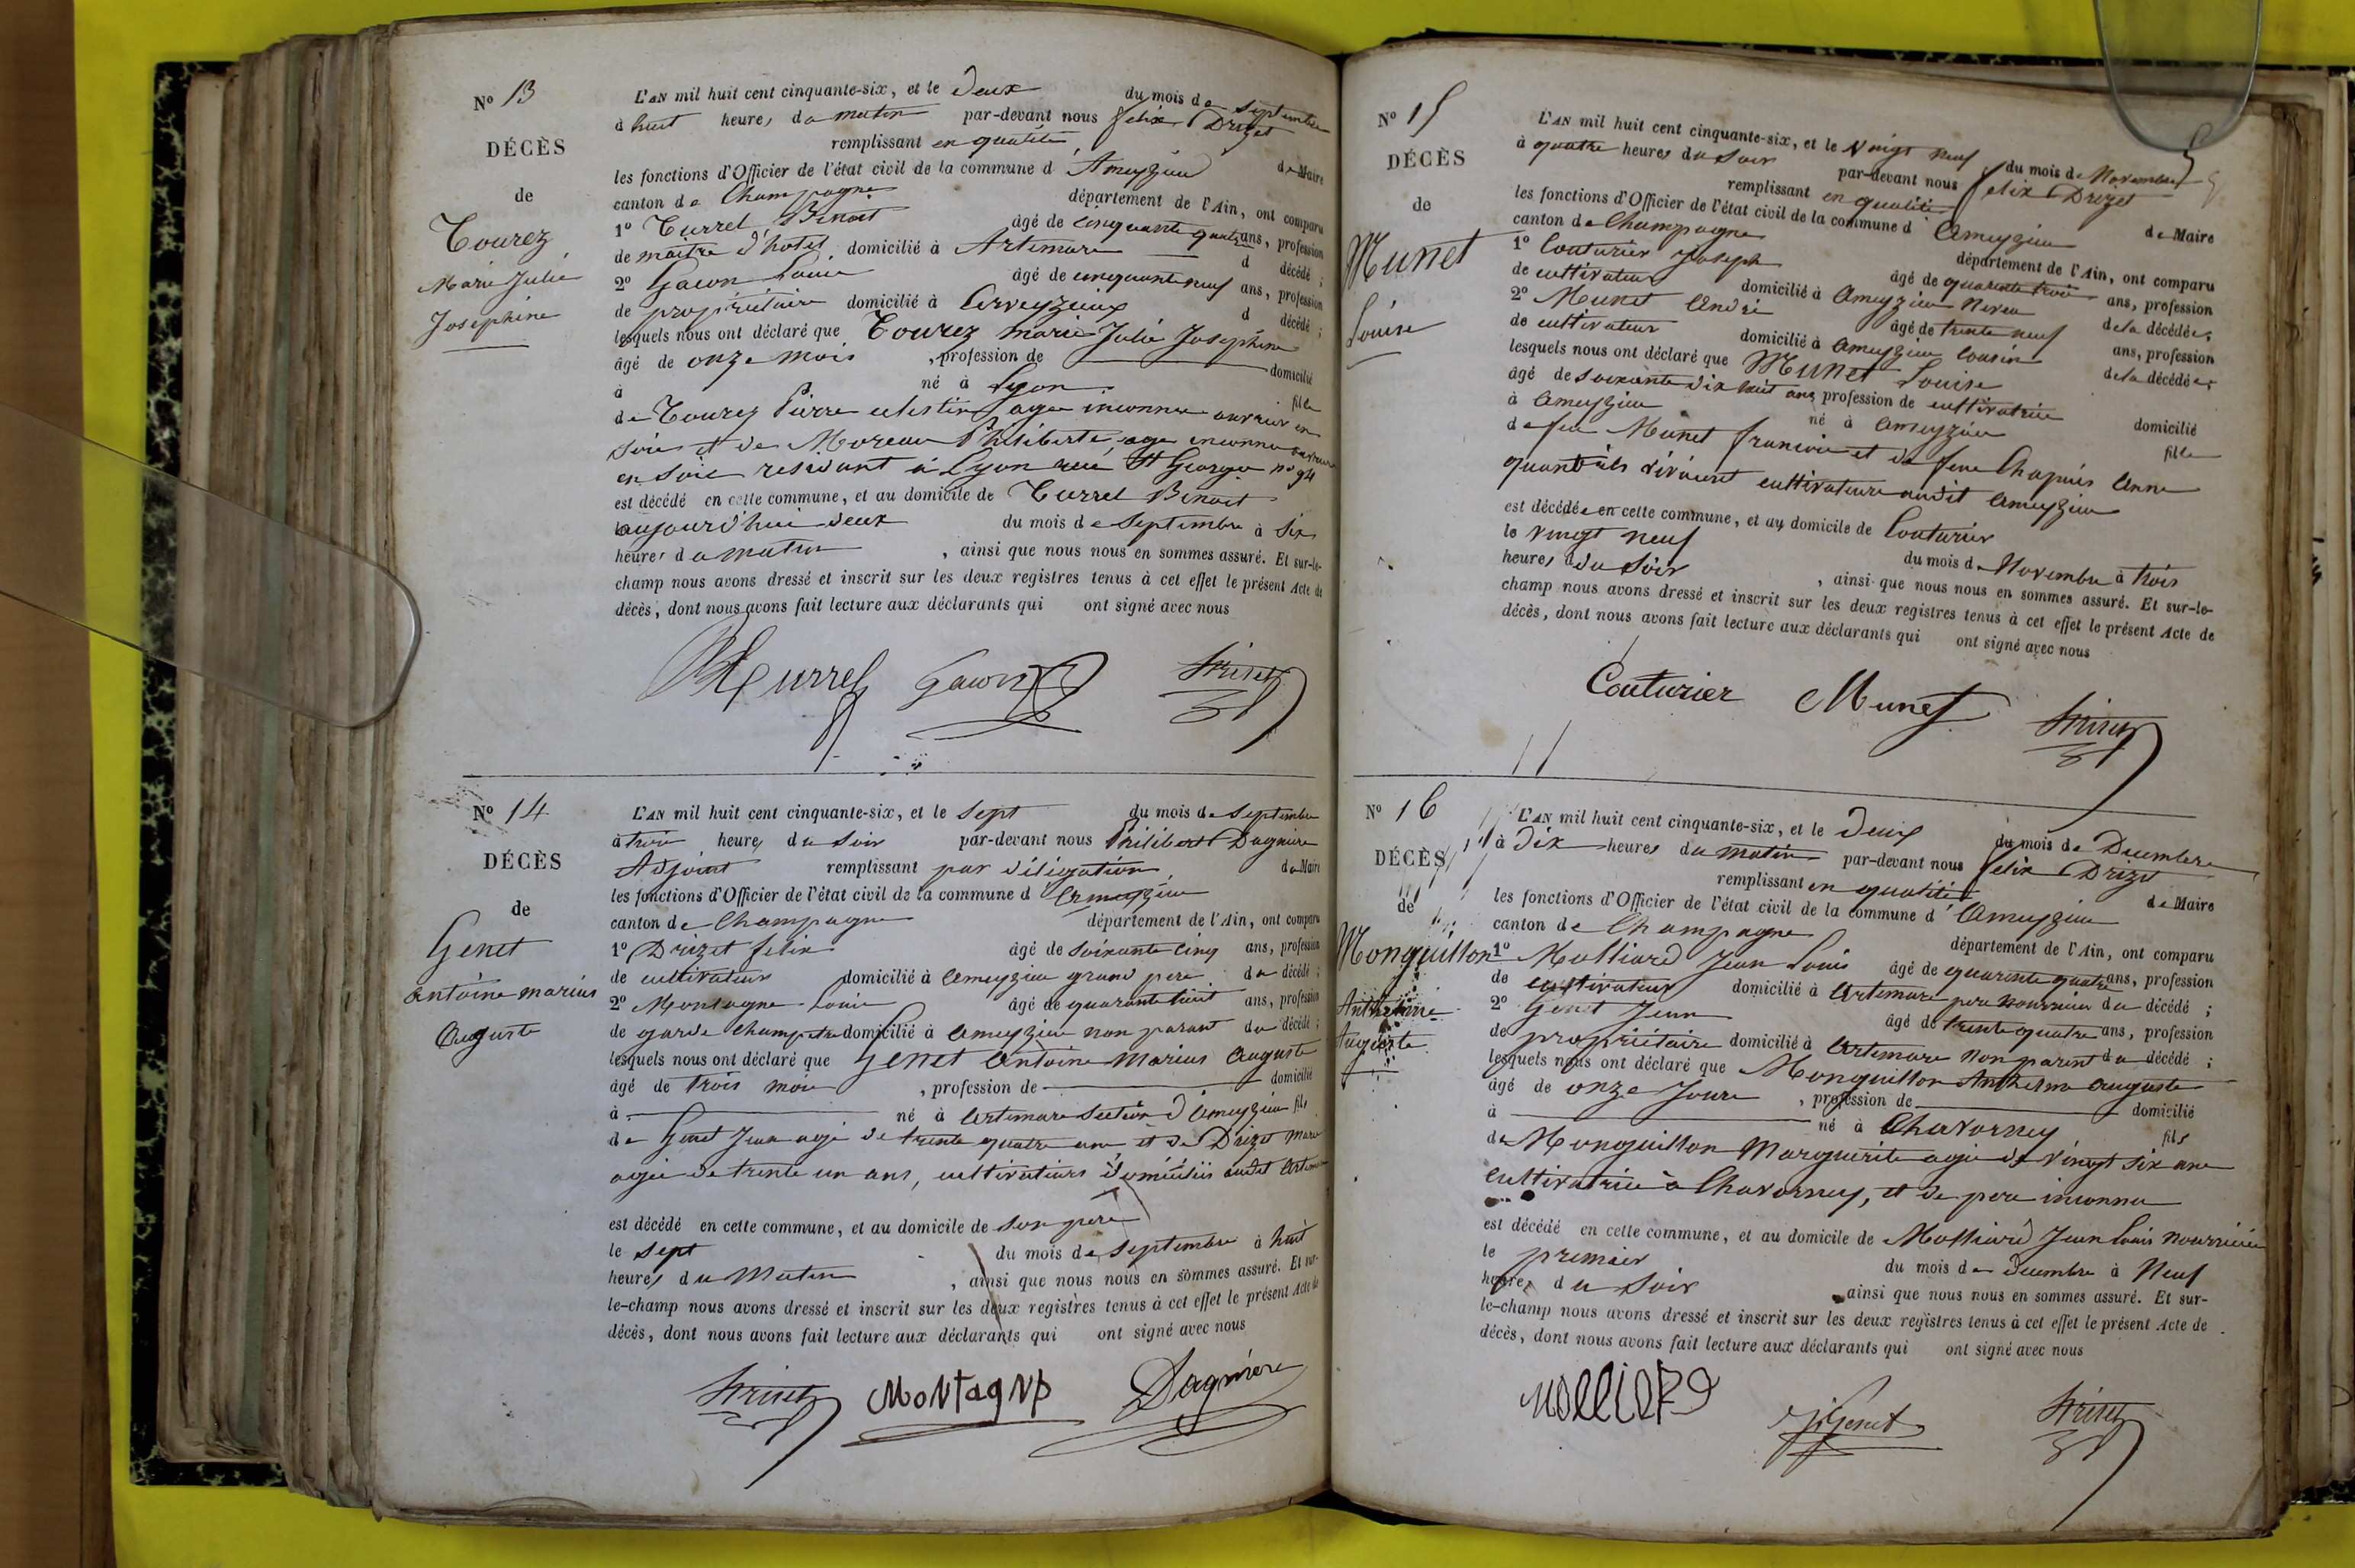 Nº 13
DÉCÈS
de
Tourez
Marie Julie
Josephine
L'AN mil huit cent cinquante-six, et le deux du mois de septembre
à huit heures du matin par-devant nous felix Drizet
remplissant en qualité de Maire
les fonctions d'Officier de l'état civil de la commune d'Ameyzieu
canton de Champagne département de l'Ain, ont comparu
1º Turrel Benoit âgé de cinquante quatre ans, profession
de maitre d'hotel domicilié à Artemare d décédé ;
2º Gacon Louis âgé de cinquante neuf ans, profession
de propriétaire domicilié à d décédé ;
lesquels nous ont déclaré que Tourez marie Julie Josephine
âgé de onze mois , profession de domicilié
à né à Lyon fille
de Tourez Pierre celestin age inconnu ouvrier en
soie et de Moreau Philiberte, age inconnu ouvriere
en soie residant à Lyon rue St George nº 94
est décédé en cette commune, et au domicile de Turrel Benoit
aujourd'hui deux du mois de septembre à six
heures du matin , ainsi que nous nous en sommes assuré. Et sur-le-
champ nous avons dressé et inscrit sur les deux registres tenus à cet effet le présent Acte de
décès, dont nous avons fait lecture aux déclarants qui ont signé avec nous
BTurrel Gacon Drizet
Nº 14
DÉCÈS
de
Genet
antoine marius
Auguste
L'AN mil huit cent cinquante-six, et le sept du mois de septembre
à trois heures du soir par-devant nous Philibert Dagnière
Adjoint remplissant par délégation de Maire
les fonctions d'Officier de l'état civil de la commune d'Ameyzieu
canton de Champagne département de l'Ain, ont comparu
1º Drizet felix âgé de soixante cinq ans, profession
de cultivateur domicilié à Ameyzieu grand pere du décédé ;
2º Montagne Louis âgé de quarante huit ans, profession
de garde champetre domicilié à Ameyzieu non parent du décédé ;
lesquels nous ont déclaré que Genet Antoine Marius Auguste
âgé de trois mois , profession de domicilié
à né à Artemare section d'Ameyzieu fils
de Genet Jean agé de trente quatre ans et de Drizet Marie
agée de trente un ans, cultivateurs domiciliés audit Artemare
est décédé en cette commune, et au domicile de son pere
le sept du mois de septembre à huit
heures du Matin , ainsi que nous nous en sommes assuré. Et sur-
le-champ nous avons dressé et inscrit sur les deux registres tenus à cet effet le présent Acte de
décès, dont nous avons fait lecture aux déclarants qui ont signé avec nous
Drizet MoNtagNe Dagnière
Nº 15
DÉCÈS
de
Munet
Louise
L'AN mil huit cent cinquante-six, et le vingt neuf du mois de Novembre
à quatre heures du soir par-devant nous felix Drizet
remplissant en qualité de Maire
les fonctions d'Officier de l'état civil de la commune d'Ameyzieu
canton de Champagne département de l'Ain, ont comparu
1º Couturier Joseph âgé de quarante trois ans, profession
de cultivateur domicilié à Ameyzieu neveu de la décédée ;
2º Munet André âgé de trente neuf ans, profession
de cultivateur domicilié à Ameyzieu cousin de la décédée ;
lesquels nous ont déclaré que Munet Louise
âgé de soixante dix huit ans profession de cultivatrice domicilié
à Ameyzieu né à Ameyzieu fille
de feu Munet francois et de feue Chapuis Anne
quand ils vivaient cultivateurs audit Ameyzieu
est décédée en cette commune, et au domicile de Couturier
le vingt neuf du mois de Novembre à trois
heures du soir , ainsi que nous nous en sommes assuré. Et sur-le-
champ nous avons dressé et inscrit sur les deux registres tenus à cet effet le présent Acte de
décès, dont nous avons fait lecture aux déclarants qui ont signé avec nous
Couturier Munet Drizet
Nº 16
DÉCÈS
de
Monguillon
Anthelme
Auguste
L'AN mil huit cent cinquante-six, et le Deux du mois de Decembre
à Dix heures du matin par-devant nous felix Drizet
remplissant en qualité de Maire
les fonctions d'Officier de l'état civil de la commune d'Ameyzieu
canton de Champagne département de l'Ain, ont comparu
1º Molliard Jean Louis âgé de quarante quatre ans, profession
de cultivateur domicilié à Artemare pere nourricier du décédé ;
2º Genet Jean âgé de trente quatre ans, profession
de propriétaire domicilié à Artemare non parent du décédé ;
lesquels nous ont déclaré que Monguillon Anthelme auguste
âgé de onze Jours , profession de domicilié
à né à Chavornay fils
de Monguillon Marguerite agée de vingt six ans
cultivatrice à Chavornay, et de pere inconnu
est décédé en cette commune, et au domicile de Molliard Jean Louis nourricier
le premier du mois de decembre à Neuf
heures du soir ainsi que nous nous en sommes assuré. Et sur-
le-champ nous avons dressé et inscrit sur les deux registres tenus à cet effet le présent Acte de
décès, dont nous avons fait lecture aux déclarants qui ont signé avec nous
MOlliARD Genet Drizet